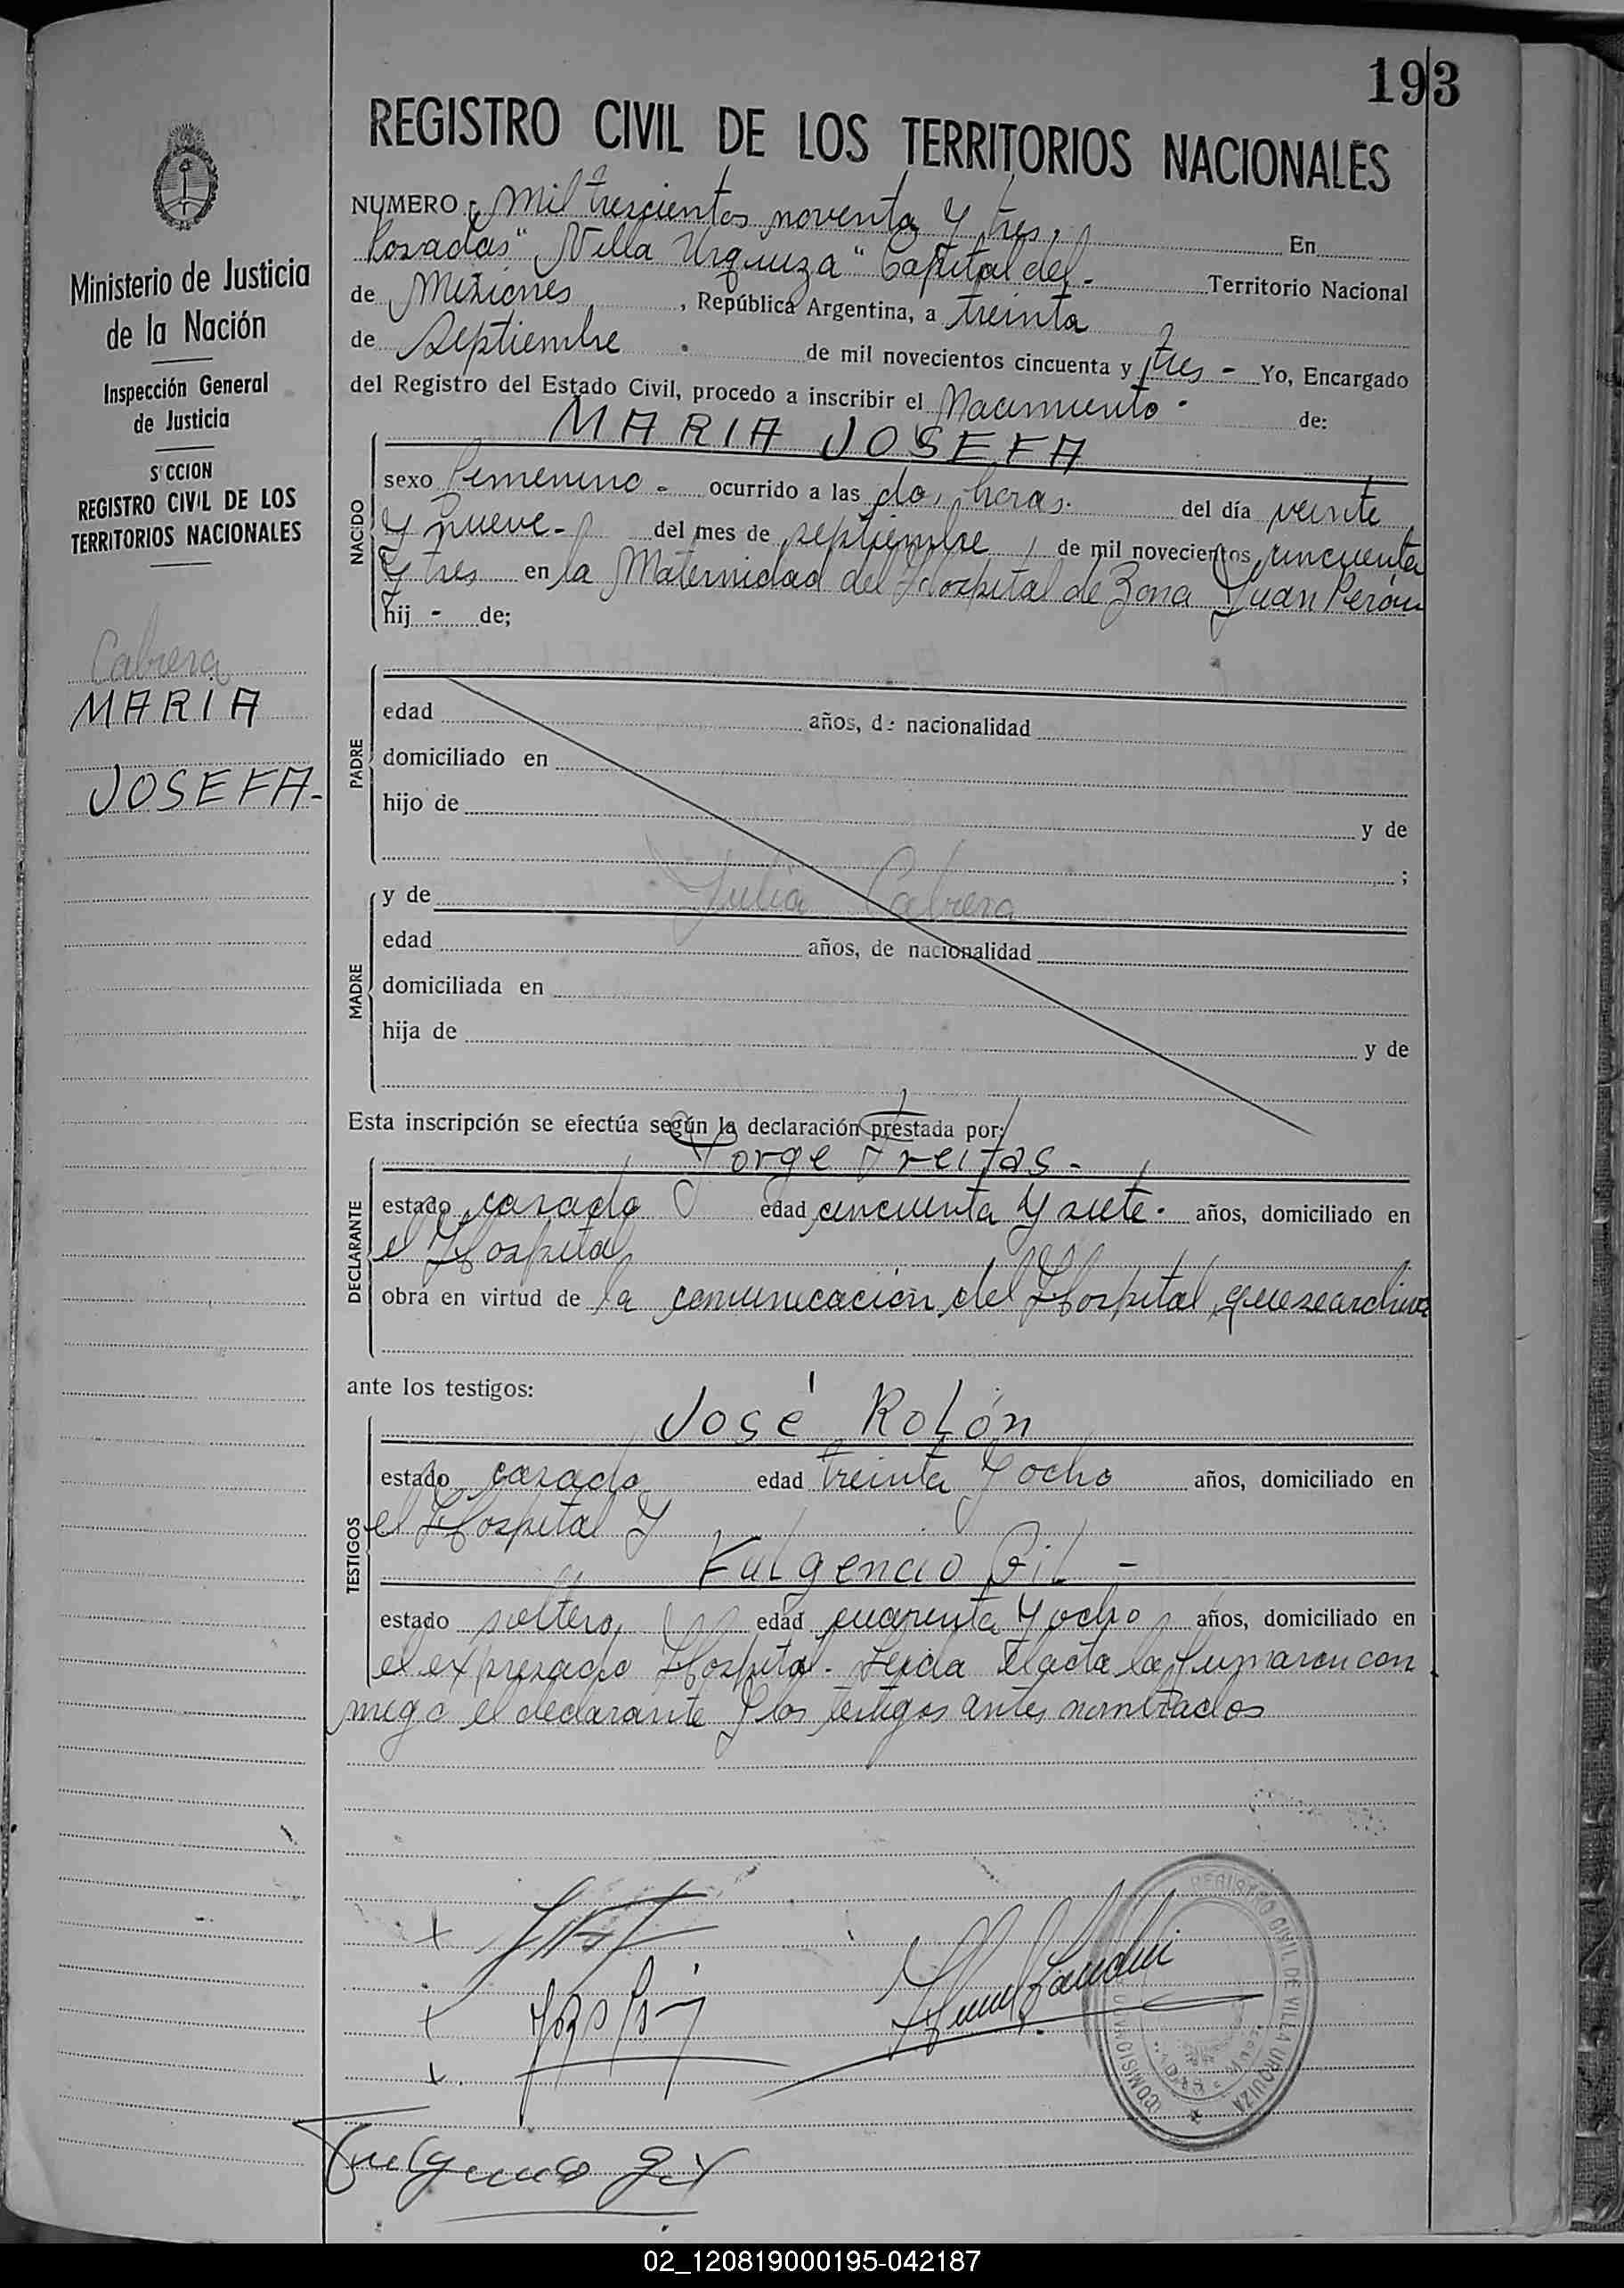 193
REGISTRO CIVIL DE LOS TERRITORIOS NACIONALES
Ministerio de Justicia
de la Nación
Inspección General
de Justicia
S CCION
REGISTRO CIVIL DE LOS
TERRITORIOS NACIONALES
Cabrera
MARIA
JOSEFA-
NUMERO mil trescientos noventa y tres, En
Posadas "Villa Urquiza" Capital del - Territorio Nacional
de Misiones, República Argentina, a treinta
de septiembre de mil novecientos cincuenta y tres - Yo, Encargado
del Registro del Estado Civil, procedo a inscribir el Nacimiento - de:
MARIA JOSEFA
NACIDO
sexo femenino - ocurrido a las dos horas. del día veinte
y nueve - del mes de septiembre, de mil novecientos cincuenta
y tres en la Maternidad del Hospital de Zona Juan Perón
hij - de;
PADRE
edad años, de nacionalidad
domiciliado en
hijo de y de
;
MADRE
y de Julia Cabrera
edad años, de nacionalidad
domiciliada en
hija de y de
Esta inscripción se efectúa según la declaración prestada por:
DECLARANTE
Jorge Freitas -
estado casado edad cincuenta y siete - años, domiciliado en
el Hospital
obra en virtud de la comunicación del Hospital que se archiva
ante los testigos:
TESTIGOS
José Rolón
estado casado edad treinta y ocho años, domiciliado en
el Hospital y
Fulgencio Gil -
estado soltero edad cuarenta y ocho años, domiciliado en
el expresado Hospital - Leida el acta la firmaron con
migo el declarante y los testigos antes nombrados
x
x
x
Fulgencio Gil
REGISTRO CIVIL DE VILLA URQUIZA
02_120819000195-042187